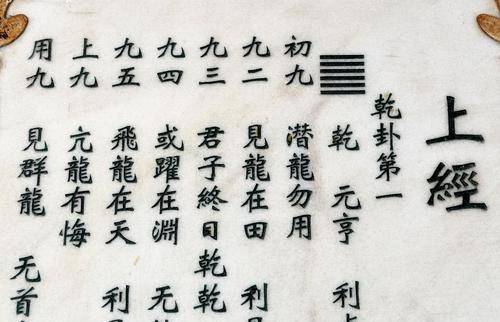 上經
乾卦第一
乾 元亨 利
初九 潛龍勿用
九二 見龍在田 利
九三 君子終日乾乾
九四 或躍在淵 无
九五 飛龍在天 利
上九 亢龍有悔
用九 見群龍 无首